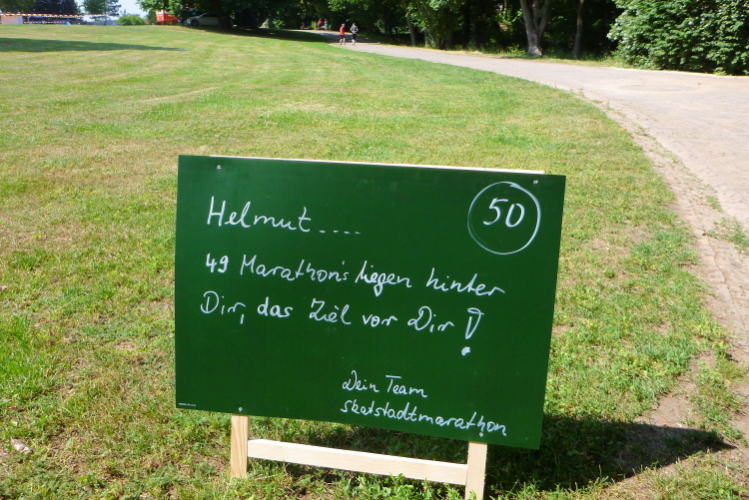 Helmut....
50
49 Marathon's liegen hinter
Dir, das Ziel vor Dir!
Dein Team
skatstadtmarathon